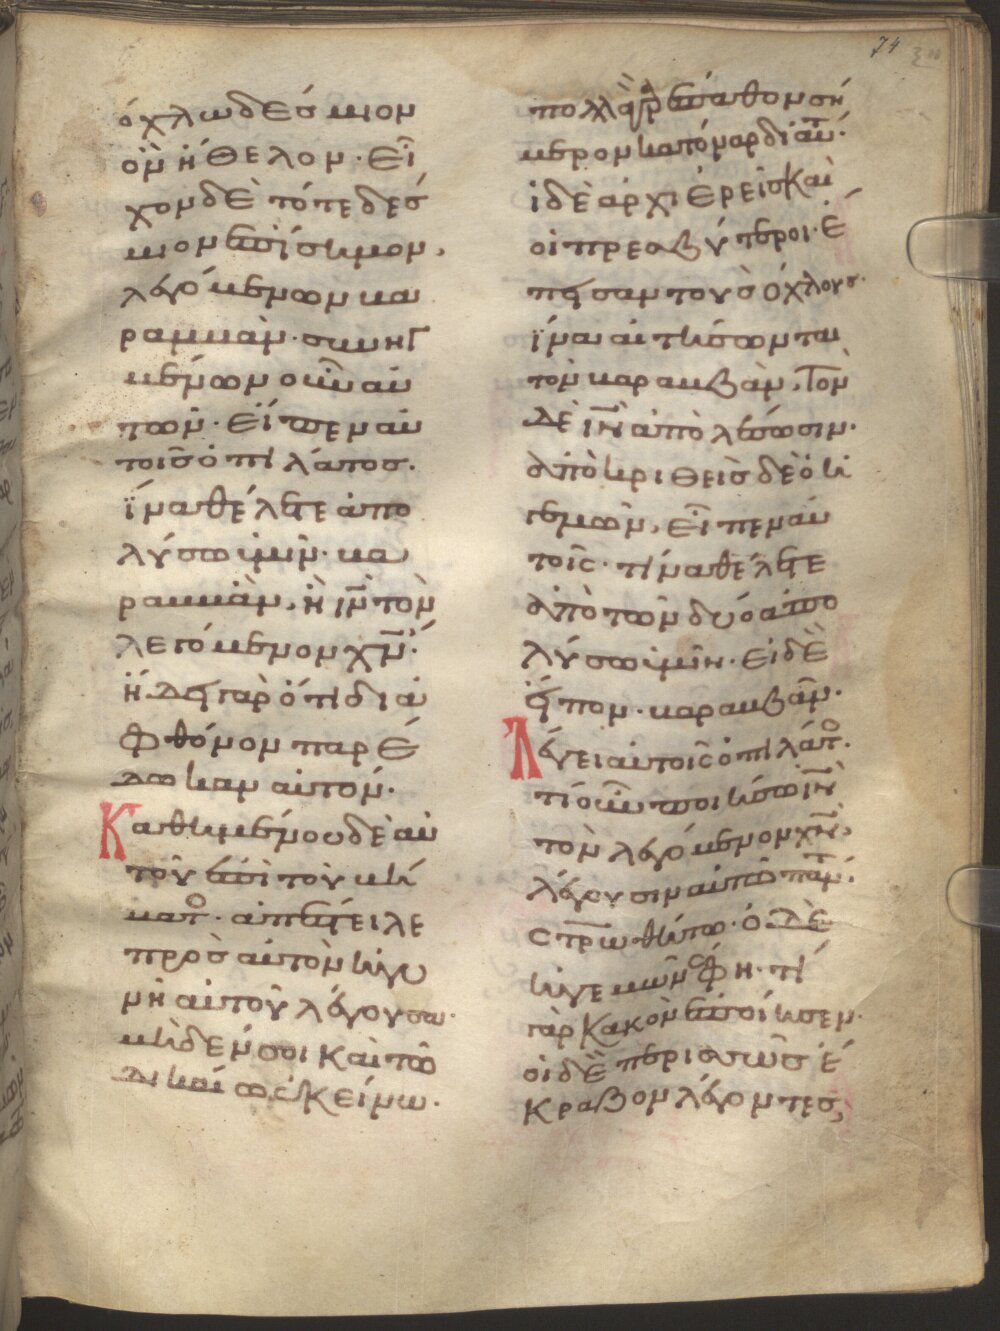 74
ὄχλω δέσμιον
ὃν ἤθελον· εἶ
χον δὲ τότε δέσ
μιον ἐπίσημον,
λεγόμενον βα
ραββάν· συνηγ
μένων οὖν αὐ
τῶν· εἶπεν αὐ
τοῖς ὁ πιλάτος·
τίνα θέλετε ἀπο
λύσω ὑμῖν· βα
ραββὰν, ἢ ἰν̅ τὸν
λεγόμενον χν̅·
ἤδει γὰρ ὅτι διὰ
φθόνον παρέ
δωκαν αὐτόν·
Καθημένου δὲ αὐ
τοῦ ἐπὶ τοῦ βή
ματο· ἀπέστειλε
πρὸς αὐτὸν ἡ γυ
νὴ αὐτοῦ λέγουσα·
μηδέν σοι καὶ τῶ
δικαίω ἐκείνω·
πολλὰ γὰρ ἔπαθον σή
μερον κατόναρ δι αυτ·
οἱ δὲ ἀρχιερεῖς καὶ
οἱ πρεσβύτεροι· ἔ
πεισαν τοὺς ὄχλους·
ἵνα αἰτήσωνται
τὸν βαραββὰν, τὸν
δὲ ιν̅ ἀπολέσωσιν·
ἀποκριθεὶς δὲ ὁ ἡ
γεμὼν, εἶπεν αὐ
τοῖς· τίνα θέλετε
ἀπὸ τῶν δύο ἀπο
λύσω ὑμῖν· οἱ δὲ
εἶπον· βαραββᾶν·
Λέγει αὐτοῖς ὁ πιλάτο·
τί οὖν ποιήσω ιν̅
τὸν λεγόμενον χν̅,
λέγουσιν αὐτῶ παντ·
στρωθήτω· ὁ δὲ
ἡγεμὼν ἔφη· τί
γὰρ κακὸν ἐποίησεν·
οἱ δὲ περισσῶς ἔ
κραζον λέγοντες,